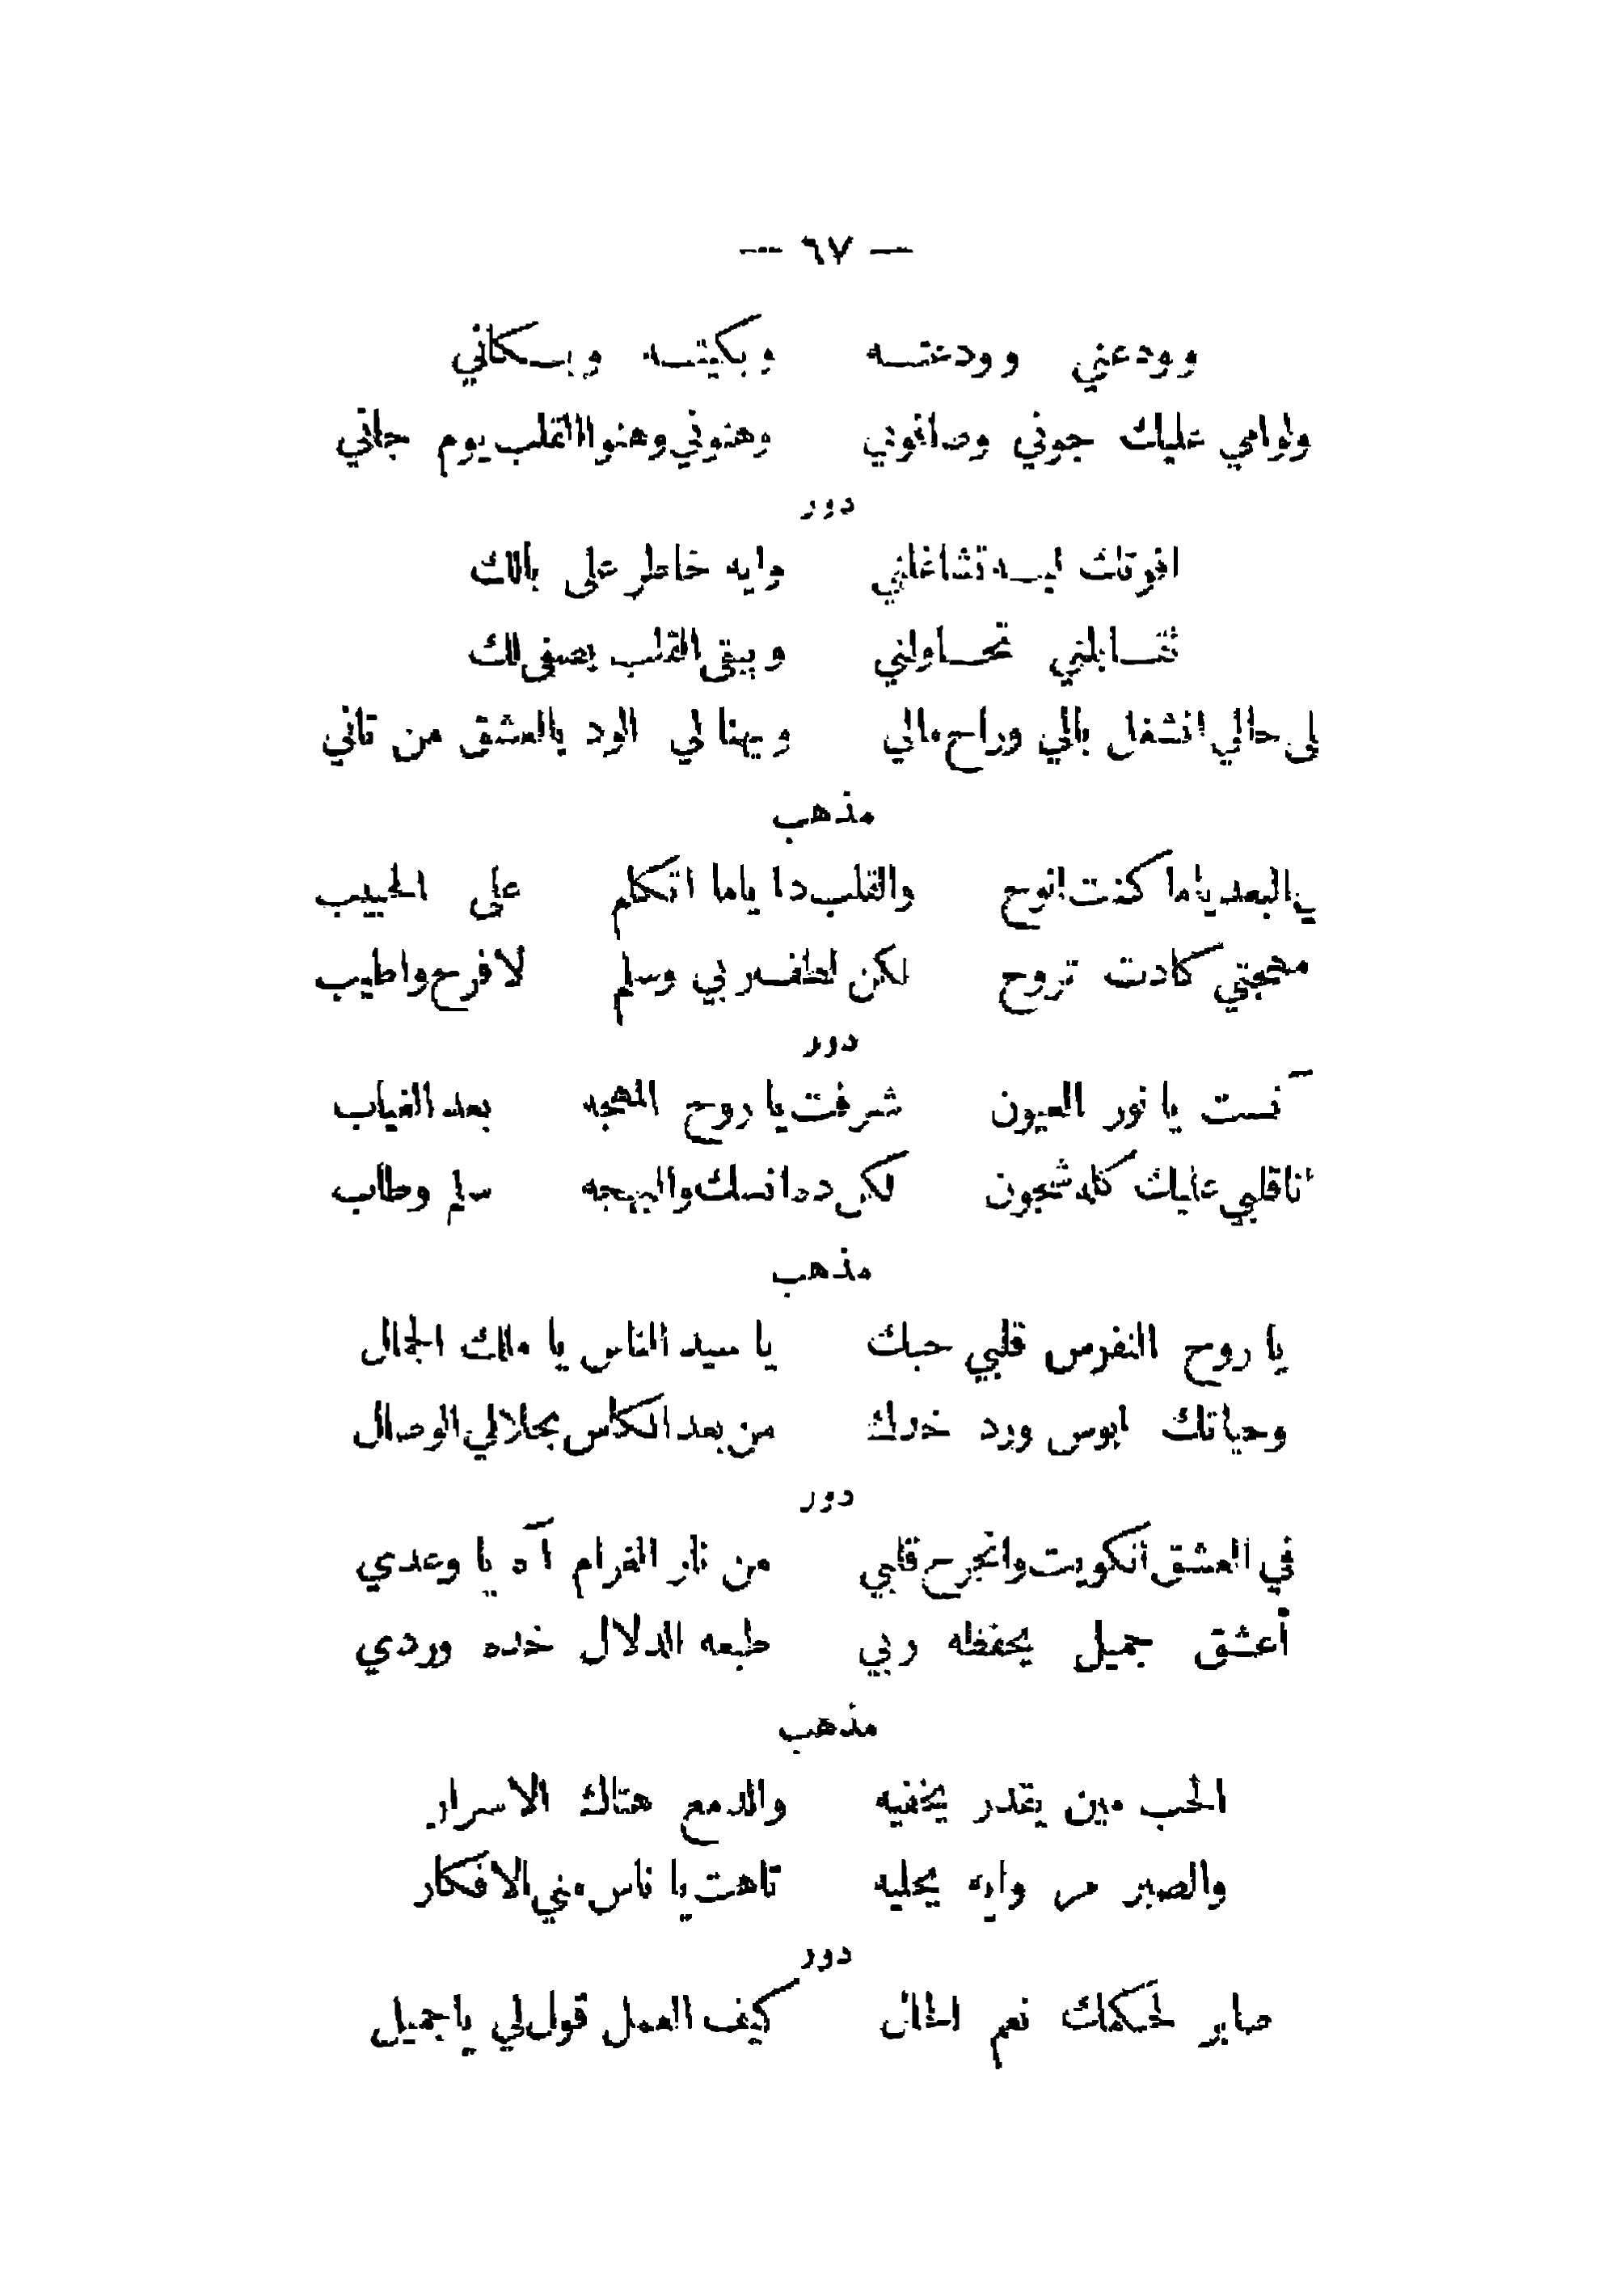 — ٦٧ —
وودعني وودعته وبكيته وبكاني
ولوامي عليك جوني وصافوني وهنوني وهنوا القلب يوم جاني
دور
افوتك ليه تشاغلني وايه خاطر على بالك
تقابلني تحاولني ويبقى القلب يصفى لك
على حالي انشغل بالي وراح مالي ويهنا لي الود بالعشق من تاني
مذهب
في البعد ياما كنت انوح والقلب دا ياما اتكلم على الحبيب
مهجتي كادت تروح لكن لطف ربي وسلم لافرح واطيب
دور
آنست يا نور العيون شرفت يا روح المهجه بعد الغياب
أنا قلبي عليك كله شجون لكن دا انسك والبهجه سلم وطاب
مذهب
يا روح النفوس قلبي حبك يا سيد الناس يا مالك الجمال
وحياتك ابوس ورد خدك من بعد الكاس يحلا لي الوصال
دور
في العشق انكويت وانجرح قلبي من نار الغرام آه يا وعدي
أعشق جميل يحفظه ربي طبعه الدلال خده وردي
مذهب
الحب مين يقدر يخفيه والدمع هتاك الاسرار
والصبر مر وايه يحليه تاهت يا ناس مني الافكار
دور
صابر لحكمك نعم الحال كيف العمل قول لي يا جميل